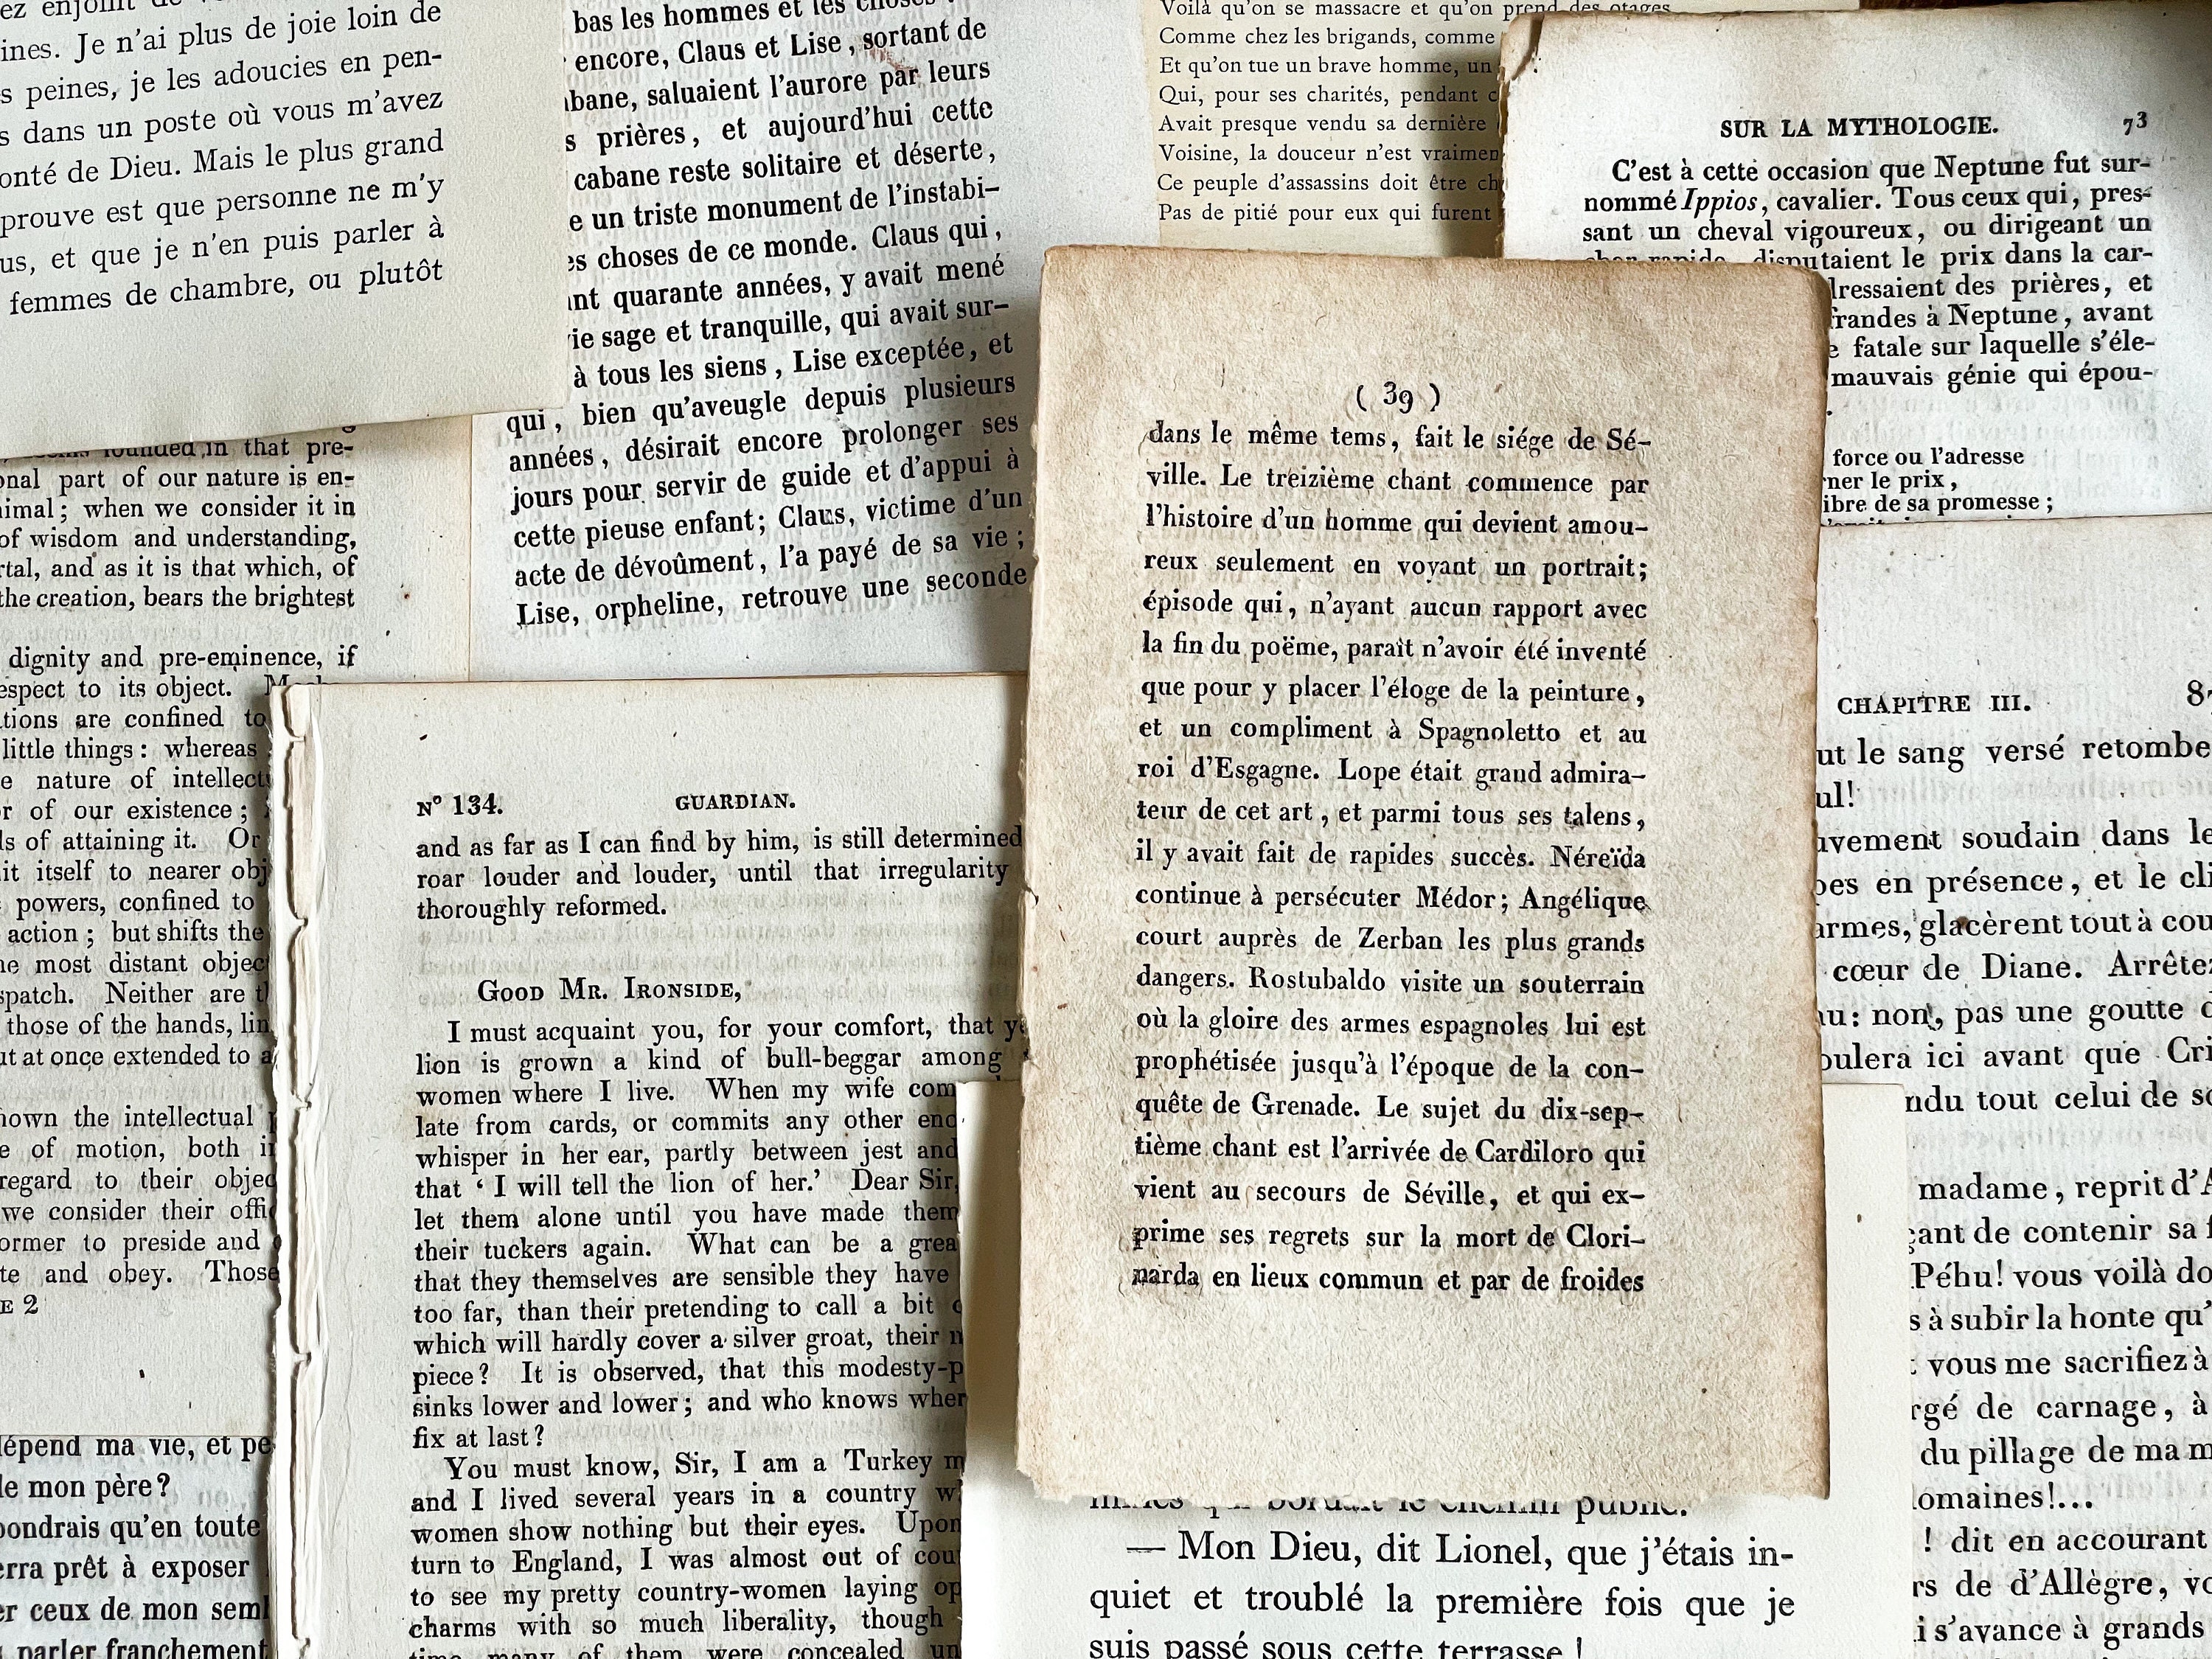 ines. Je n'ai plus de joie loin de
s peines, je les adoucies en pen-
s dans un poste où vous m'avez
onté de Dieu. Mais le plus grand
prouve est que personne ne m'y
us, et que je n'en puis parler à
femmes de chambre, ou plutôt
bas les hommes et les choses
encore, Claus et Lise, sortant de
bane, saluaient l'aurore par leurs
s prières, et aujourd'hui cette
cabane reste solitaire et déserte,
e un triste monument de l'instabi-
es choses de ce monde. Claus qui,
nt quarante années, y avait mené
ie sage et tranquille, qui avait sur-
à tous les siens, Lise exceptée, et
qui, bien qu'aveugle depuis plusieurs
années, désirait encore prolonger ses
jours pour servir de guide et d'appui à
cette pieuse enfant; Claus, victime d'un
acte de dévoûment, l'a payé de sa vie;
Lise, orpheline, retrouve une seconde
Voilà qu'on se massacre et qu'on prend des otages
Comme chez les brigands, comme
Et qu'on tue un brave homme, un
Qui, pour ses charités, pendant
Avait presque vendu sa dernière
Voisine, la douceur n'est vraimen
Ce peuple d'assassins doit être ch
Pas de pitié pour eux qui furent
SUR LA MYTHOLOGIE. 73
C'est à cette occasion que Neptune fut sur-
nommé Ippios, cavalier. Tous ceux qui, pres-
sant un cheval vigoureux, ou dirigeant un
char rapide, disputaient le prix dans la car-
dressaient des prières, et
frandes à Neptune, avant
e fatale sur laquelle s'éle-
mauvais génie qui épou-
force ou l'adresse
rner le prix,
ibre de sa promesse;
founded in that pre-
onal part of our nature is en-
nimal; when we consider it in
of wisdom and understanding,
rtal, and as it is that which, of
the creation, bears the brightest
dignity and pre-eminence, if
espect to its object.
tions are confined to
little things: whereas
e nature of intellect
r of our existence;
ls of attaining it. Or
it itself to nearer obj
powers, confined to
action; but shifts the
he most distant objec
spatch. Neither are t
those of the hands, lin
ut at once extended to a
hown the intellectual
e of motion, both i
regard to their objec
we consider their offi
ormer to preside and
te and obey. Those
E 2
dépend ma vie, et pe
de mon père?
pondrais qu'en toute
erra prêt à exposer
er ceux de mon seml
parler franchement
N° 134. GUARDIAN.
and as far as I can find by him, is still determined
roar louder and louder, until that irregularity
thoroughly reformed.
Good Mr. Ironside,
I must acquaint you, for your comfort, that y
lion is grown a kind of bull-beggar among
women where I live. When my wife com
late from cards, or commits any other eno
whisper in her ear, partly between jest and
that ‘ I will tell the lion of her.’ Dear Sir,
let them alone until you have made them
their tuckers again. What can be a grea
that they themselves are sensible they have
too far, than their pretending to call a bit
which will hardly cover a silver groat, their
piece? It is observed, that this modesty-p
sinks lower and lower; and who knows wher
fix at last?
You must know, Sir, I am a Turkey m
and I lived several years in a country w
women show nothing but their eyes. Upon
turn to England, I was almost out of cou
to see my pretty country-women laying op
charms with so much liberality, though
time many of them were concealed un
( 39 )
dans le même tems, fait le siége de Sé-
ville. Le treizième chant commence par
l'histoire d'un homme qui devient amou-
reux seulement en voyant un portrait;
épisode qui, n'ayant aucun rapport avec
la fin du poëme, paraît n'avoir été inventé
que pour y placer l'éloge de la peinture,
et un compliment à Spagnoletto et au
roi d'Esgagne. Lope était grand admira-
teur de cet art, et parmi tous ses talens,
il y avait fait de rapides succès. Néreïda
continue à persécuter Médor; Angélique
court auprès de Zerban les plus grands
dangers. Rostubaldo visite un souterrain
où la gloire des armes espagnoles lui est
prophétisée jusqu'à l'époque de la con-
quête de Grenade. Le sujet du dix-sep-
tième chant est l'arrivée de Cardiloro qui
vient au secours de Séville, et qui ex-
prime ses regrets sur la mort de Clori-
narda en lieux commun et par de froides
qui bordait le chemin public.
— Mon Dieu, dit Lionel, que j'étais in-
quiet et troublé la première fois que je
suis passé sous cette terrasse !
CHAPITRE III. 8
ut le sang versé retombe
ul!
uvement soudain dans le
pes en présence, et le cli
armes, glacèrent tout à cou
cœur de Diane. Arrêtez
au: non, pas une goutte d
oulera ici avant que Cri
ndu tout celui de so
madame, reprit d'A
çant de contenir sa
Péhu! vous voilà do
s à subir la honte qu'
vous me sacrifiez à
rgé de carnage, à
du pillage de ma m
omaines!...
! dit en accourant
rs de d'Allègre, vo
i s'avance à grands